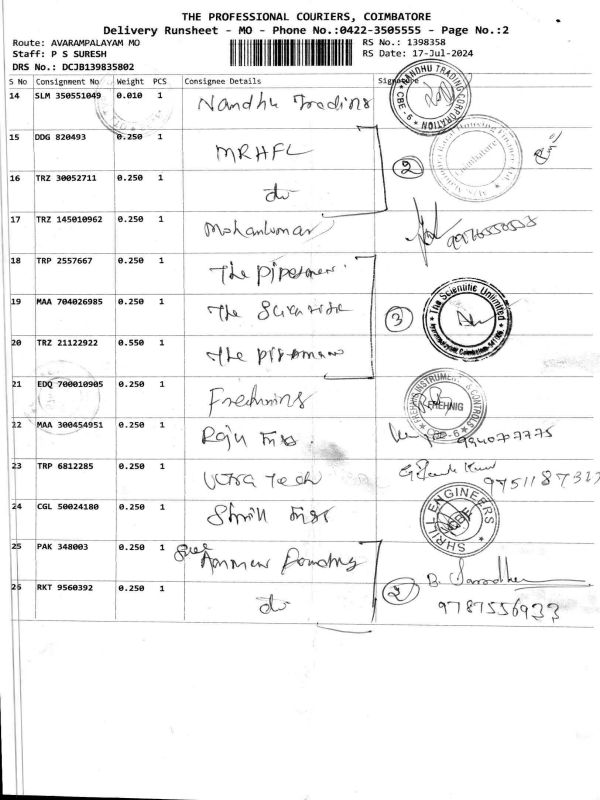 THE PROFESSIONAL COURIERS, COIMBATORE
Delivery Runsheet - MO - Phone No.:0422-3505555 - Page No.:2
Route: AVARAMPALAYAM MO
RS No.: 1398358
Staff: P S SURESH
RS Date: 17-Jul-2024
DRS No.: DCJB139835802
S No Consignment No Weight PCS Consignee Details Signature
14 SLM 350551049 0.010 1 Nandhu Trading
NANDHU TRADING CORPORATION CBE-6
15 DDG 820493 0.250 1 MRHFL
2
16 TRZ 30052711 0.250 1 do
17 TRZ 145010962 0.250 1 Mohankumar
18 TRP 2557667 0.250 1 The
19 MAA 704026985 0.250 1 The
3
The Scientific Unlimited
20 TRZ 21122922 0.550 1 The
21 EDQ 700010905 0.250 1
FREHNIG INSTRUMENTS & CONTROLS
FREHNIG
CBE-6
22 MAA 300454951 0.250 1 Raju
9940777775
23 TRP 6812285 0.250 1 Ultra Tech
24 CGL 50024180 0.250 1
SHRILL ENGINEERS
CBE
25 PAK 348003 0.250 1 Sree
2 B.
26 RKT 9560392 0.250 1 do
9787556933